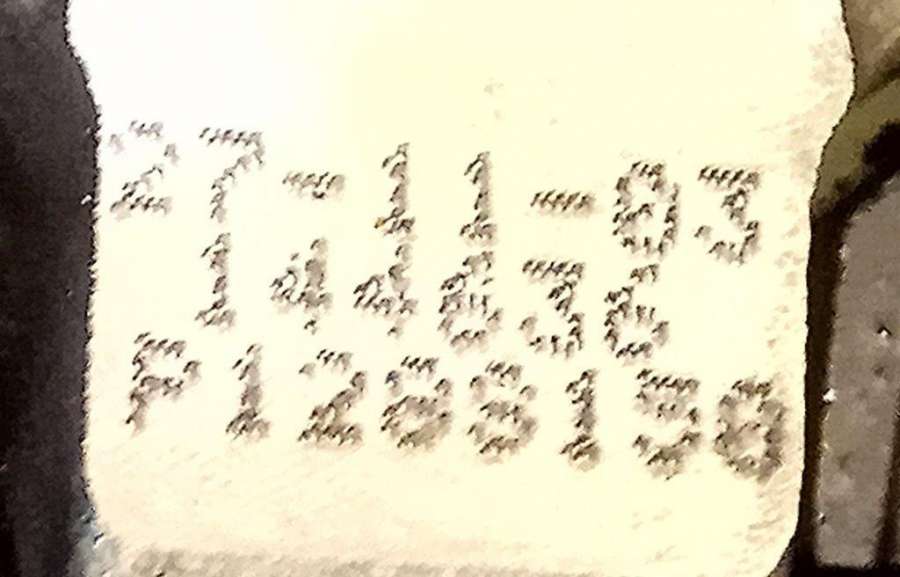 27-11-03
144636
P1268150